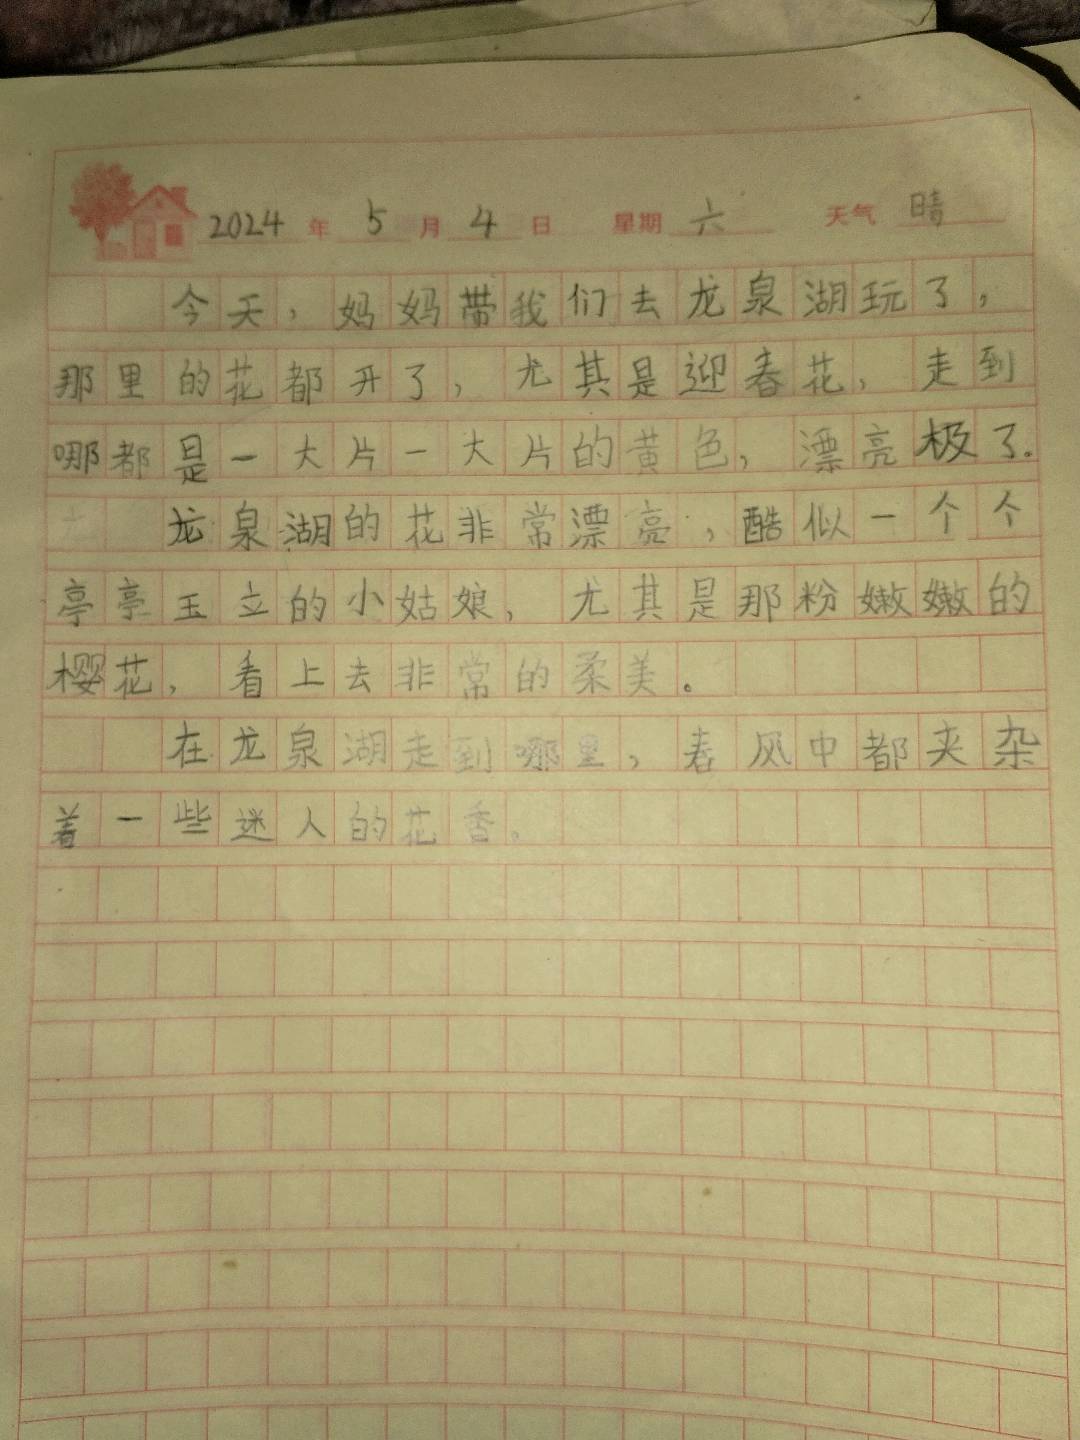 2024年5月4日 星期六 天气晴
今天，妈妈带我们去龙泉湖玩了，
那里的花都开了，尤其是迎春花，走到
哪都是一大片一大片的黄色，漂亮极了.
龙泉湖的花非常漂亮，酷似一个个
亭亭玉立的小姑娘，尤其是那粉嫩嫩的
樱花，看上去非常的柔美。
在龙泉湖走到哪里，春风中都夹杂
着一些迷人的花香。